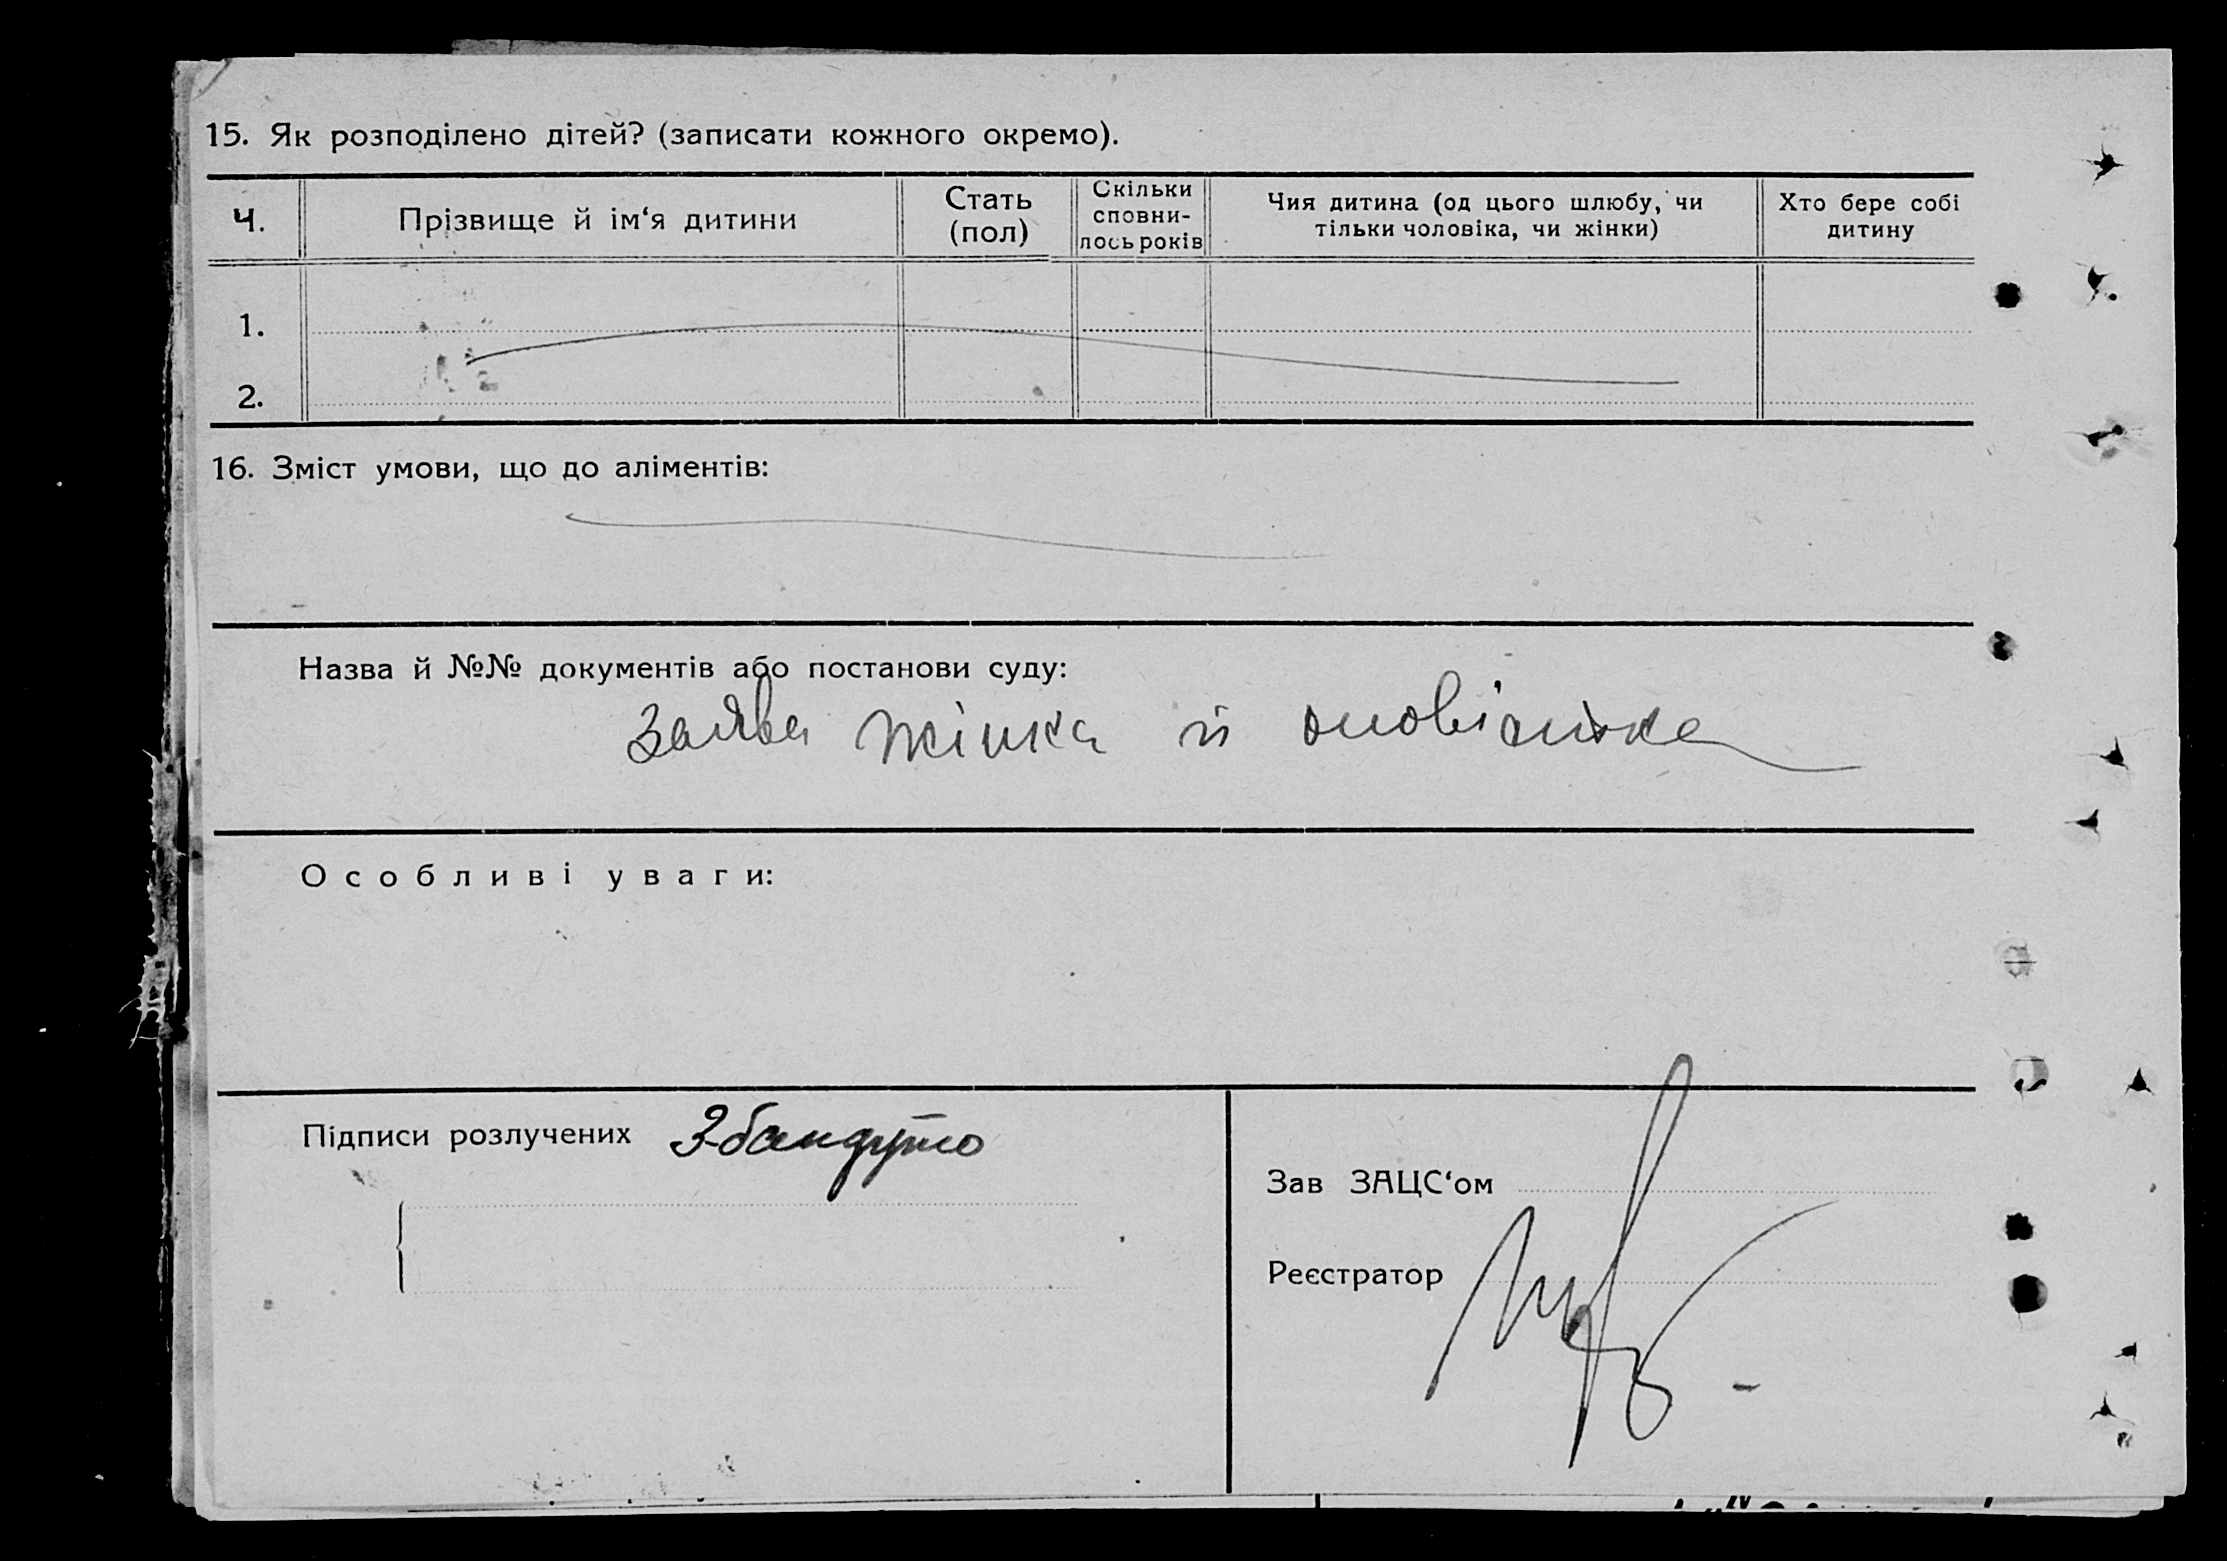 15. Як розподілено дітей? (записати кожного окремо).
Ч. Прізвище й ім‘я дитини Стать (пол) Скільки сповни-лось років Чия дитина (од цього шлюбу, чи тільки чоловіка, чи жінки) Хто бере собі дитину
1.
2.
16. Зміст умови, що до аліментів:
Назва й №№ документів або постанови суду:
заява жінка й
Особливі уваги:
Підписи розлучених
Зав ЗАЦС‘ом
Реєстратор